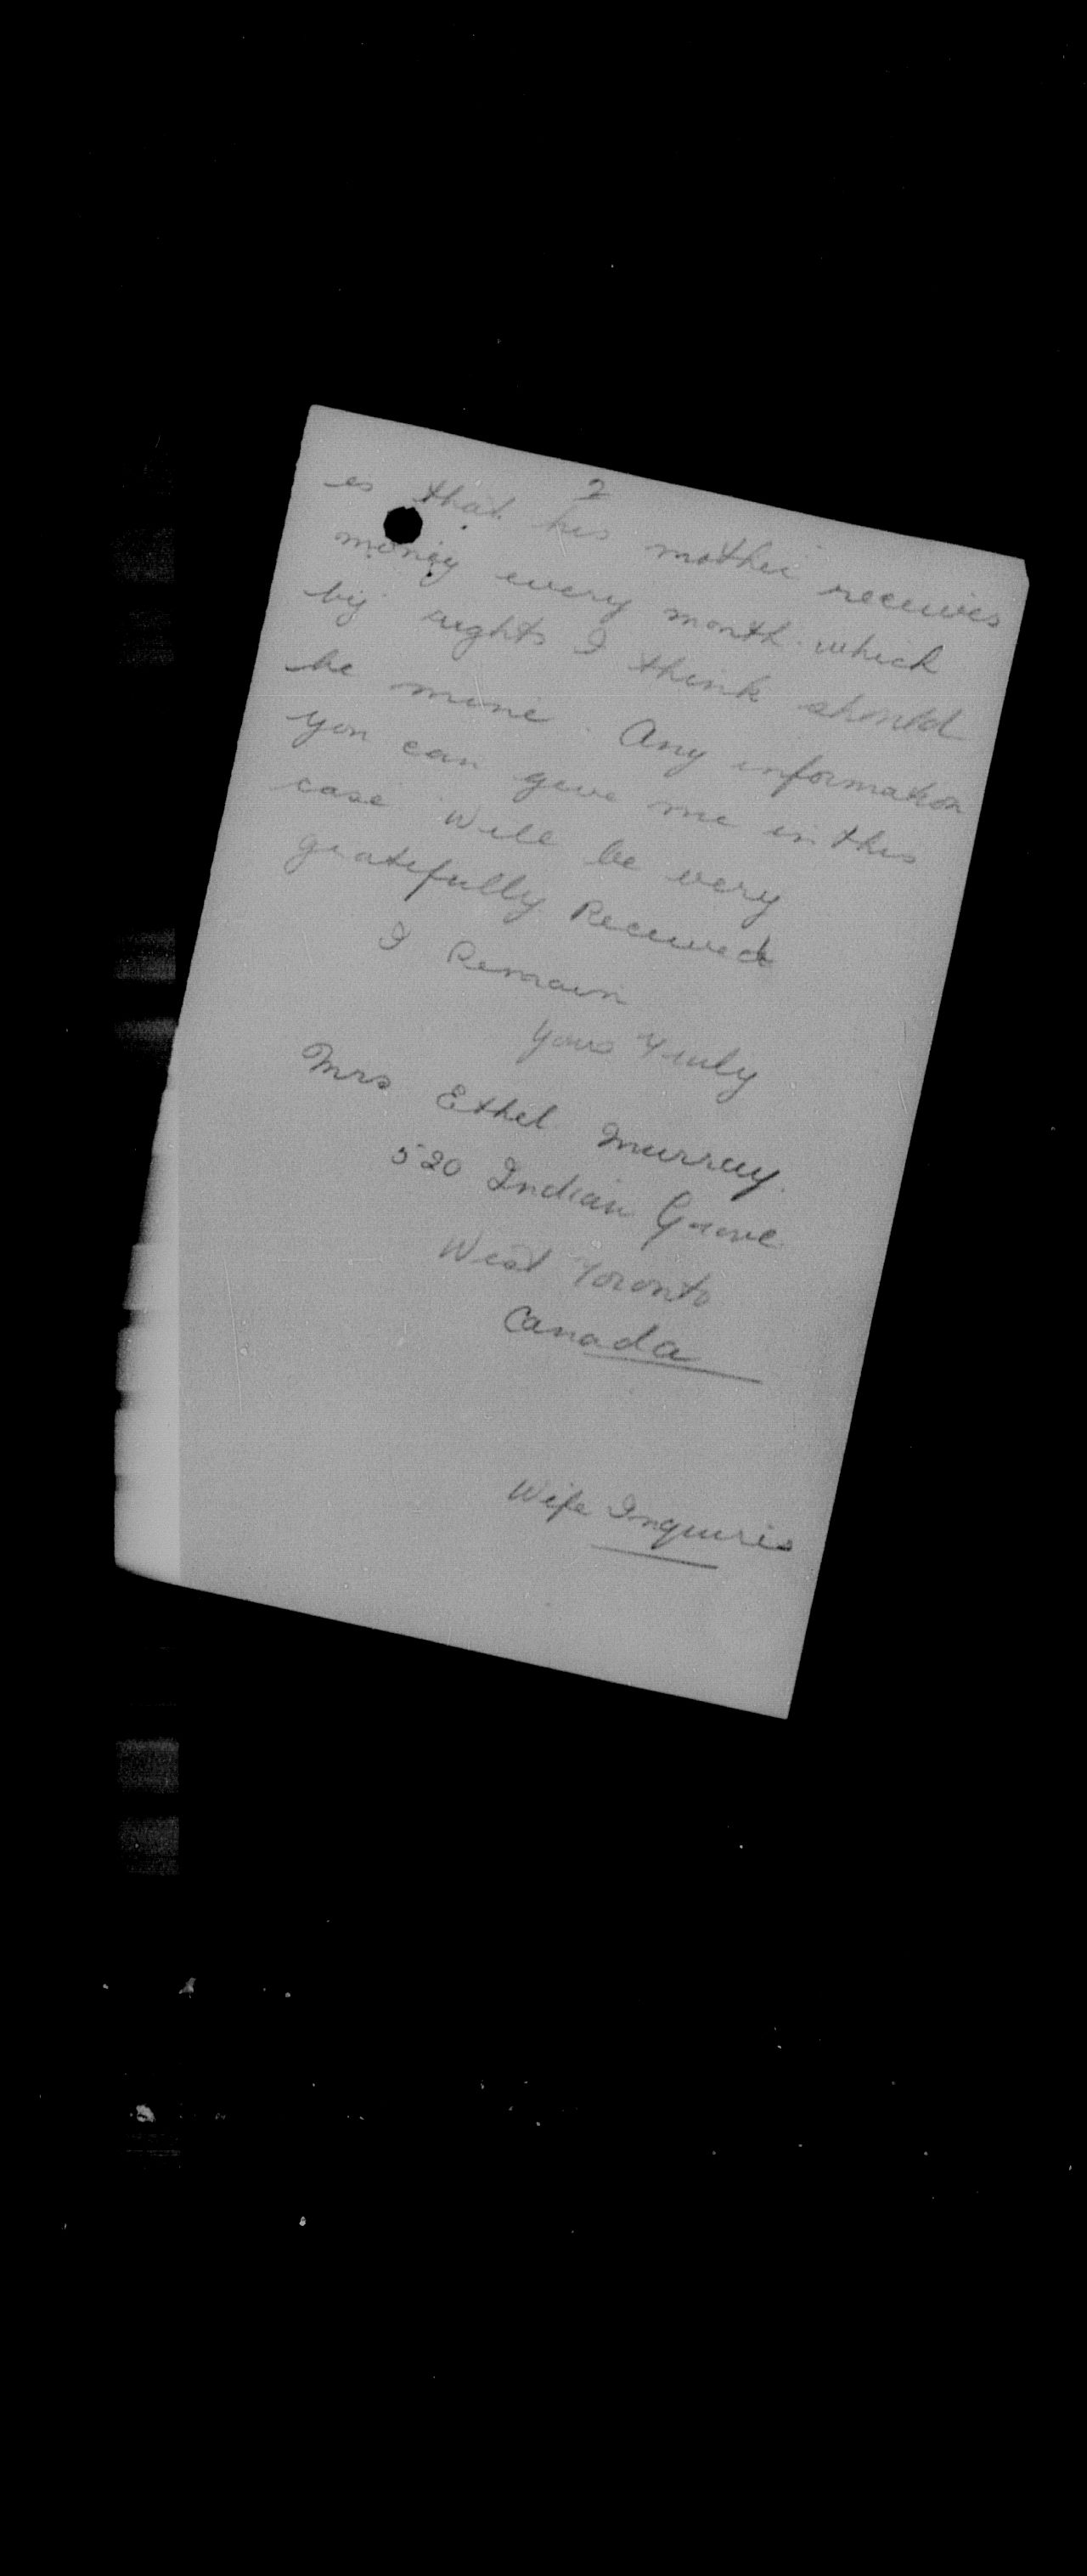 2
is that his mother receives
money every month which
by rights I think should
be mine. Any information
you can give me in this
case Will be very
gratefully Received
I Remain
Yours Truly
Mrs Ethel Murray.
520 Indian Grove
West Toronto
Canada
Wife Inquiries